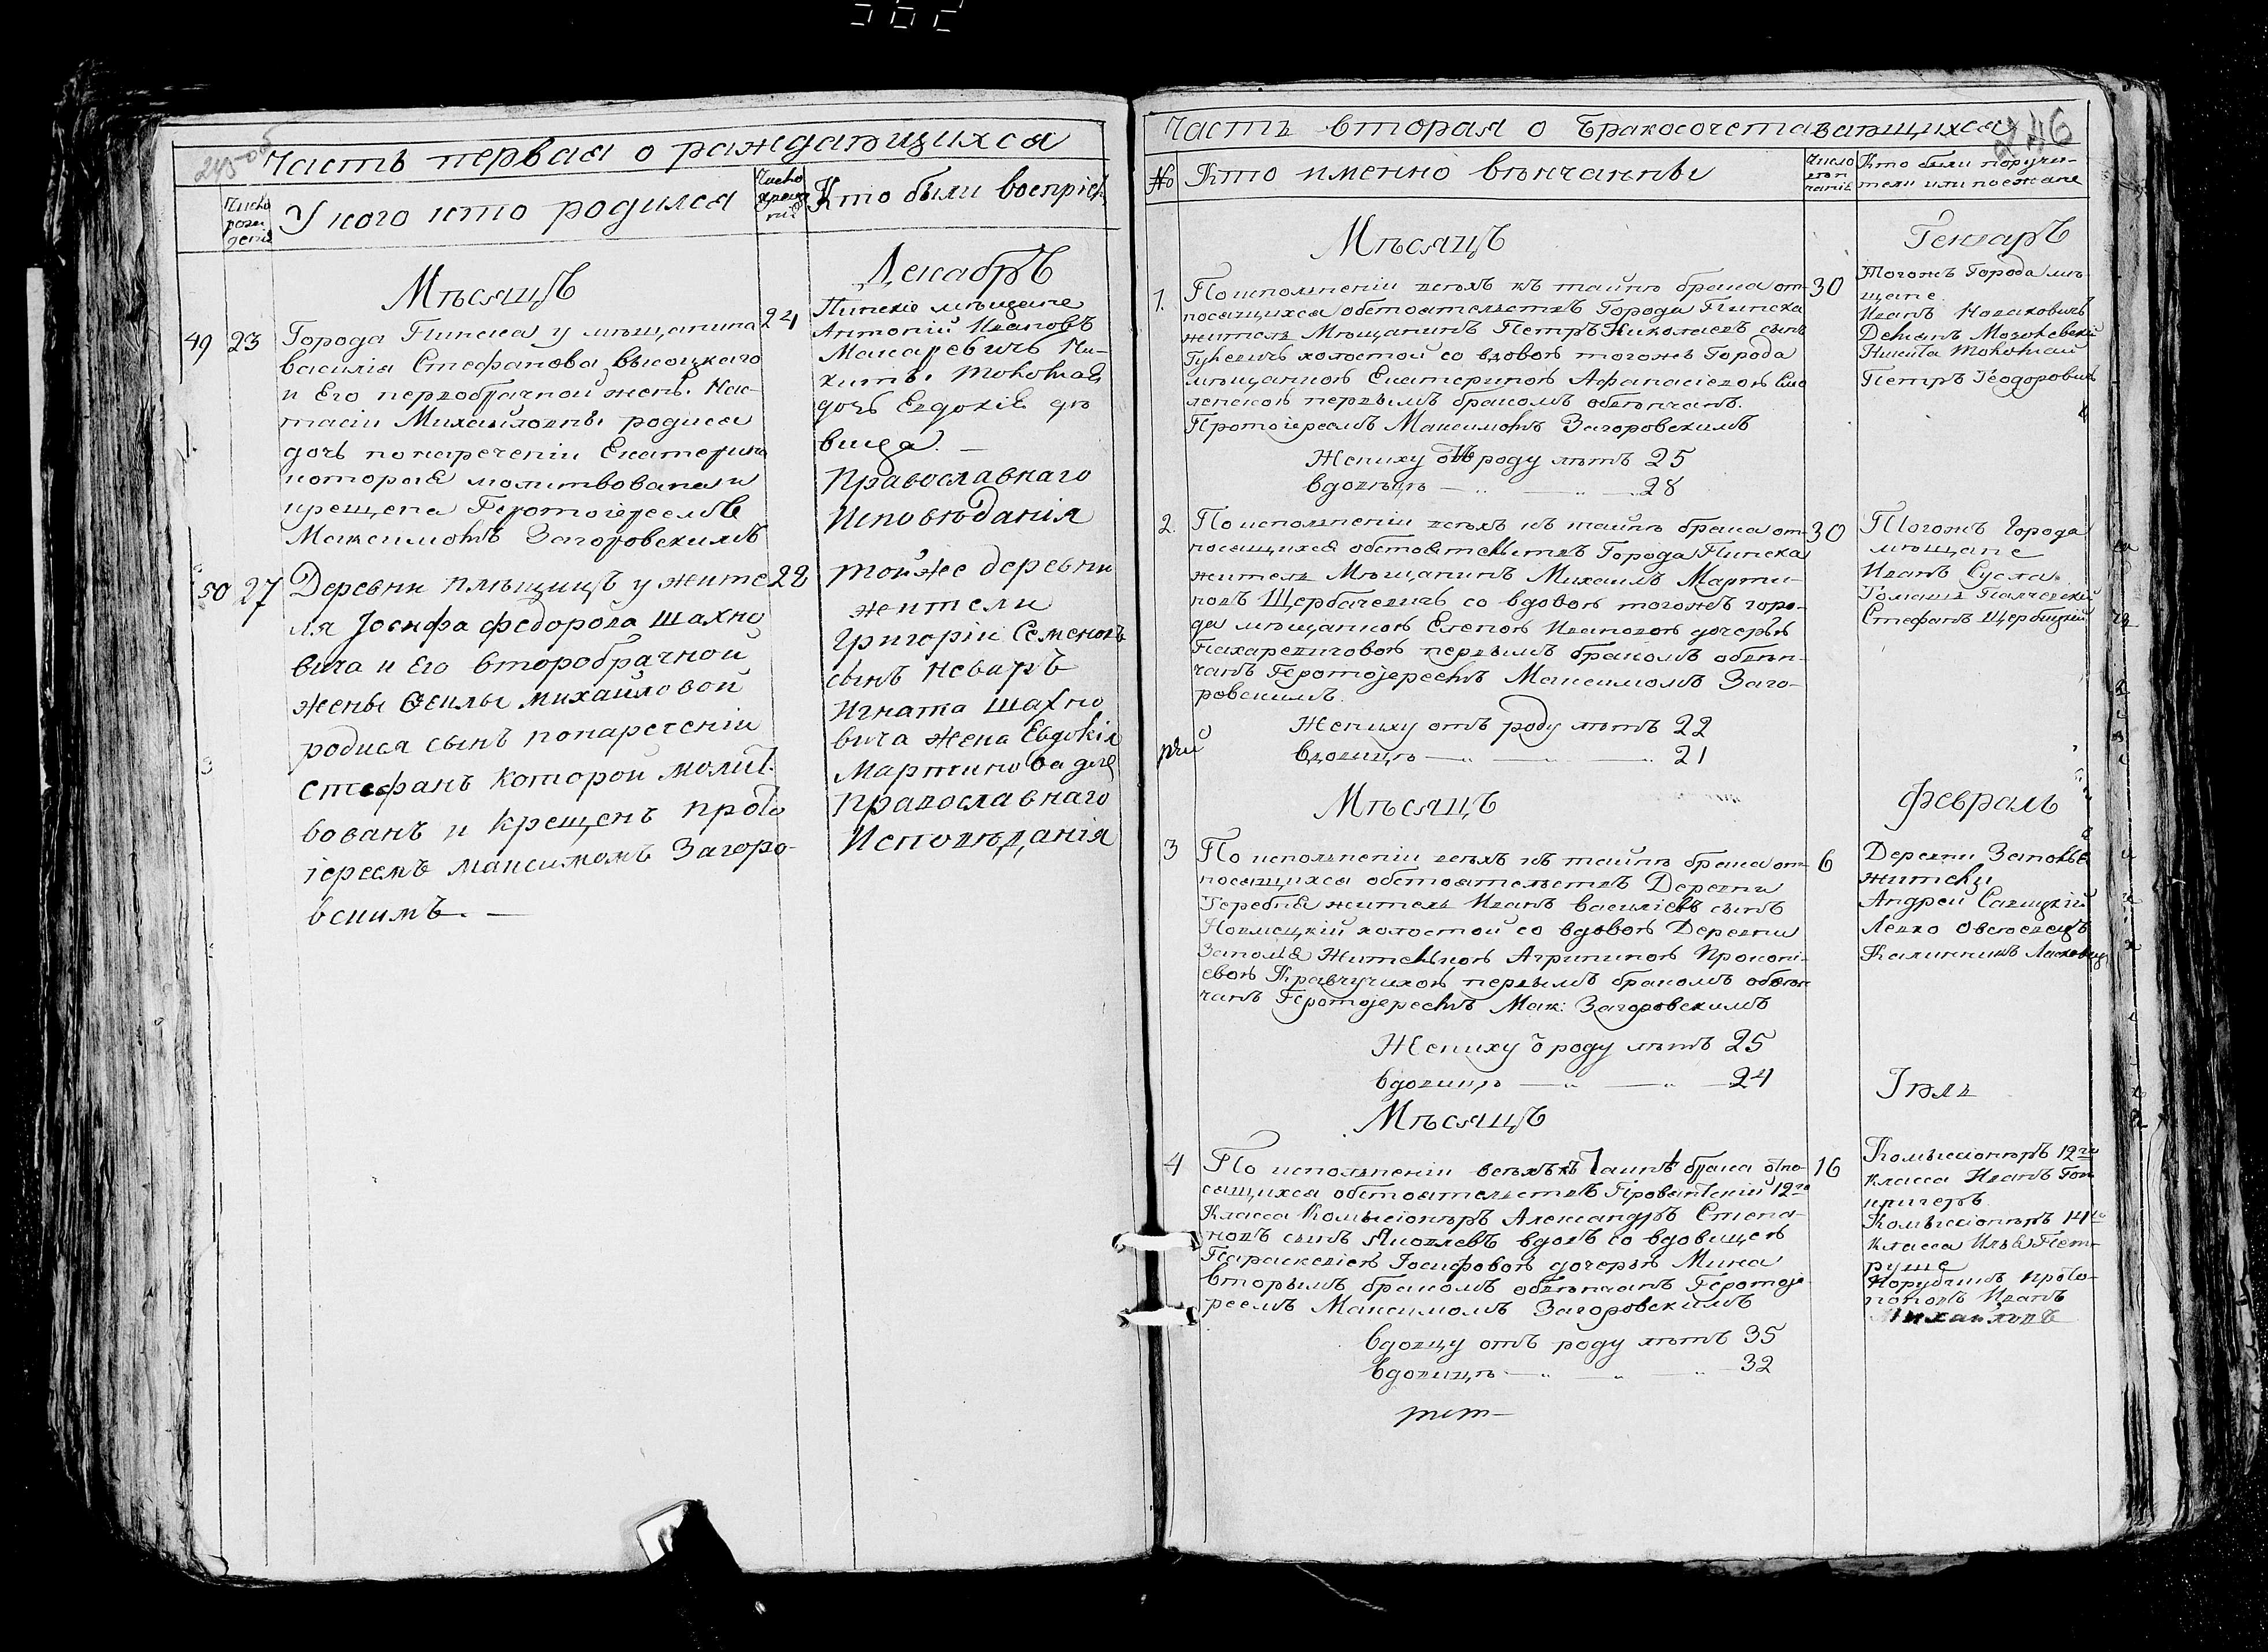 362
245 об
Часть первая о раждающихся
Число рожденія
У кого кто родился
Число крещенія
Кто были воспріем
Мѣсяцъ
Декабръ
49 23 24
Города Пинска у мѣщанина
Василія Стефанова Высоцкаго
и Его первобрачной жены Нас-
тасіи Михайловны родися
дочь понаречении Екатерина
которая молитвована и
крещена Протоіереемъ
Максимомъ Загоровскимъ
Пинскіе мѣщане
Антоній Ивановъ
Макаревичъ Ни-
киты
дочь Евдокія дѣ
вица. —
Православнаго
Исповѣданія
50 27 28
Деревни Плещицъ у жите
ля Іосифа Федорова Шахно
вича и Его второбрачной
жены Феклы Михайловой
родися сынъ понареченіи
Стефанъ которой молит
вованъ и крещенъ прото
іереемъ Максимомъ Загоро-
вскимъ. —
тойже деревни
жители
Григорій Семеновъ
сынъ Неваръ
Игната Шахно
вича жена Евдокія
Мартинова
Православнаго
Исповѣданія
246
Часть вторая о Бракосочетавающихся
№
Кто именно вѣнчанны
Число вѣнчанія
Кто были поручи-
тели или поезжане
Мѣсяцъ
Генваръ
1. 30
По исполненіи всѣхъ къ тайнѣ брака от-
носящихся обстоятельствъ Города Пинска
житель Мѣщанинъ Петръ Николаевъ сынъ
холостой со вдовою тогожъ Города
мѣщанкою Екатериною Афанасіевою
первымъ бракомъ обвѣнчанъ.
Протоіереемъ Максимомъ Загоровскимъ
Жениху отъ роду лѣтъ 25
вдовицѣ — „ — „ — 28
Тогожъ Города мѣ-
щане
Иванъ Новаковичъ
Демянъ
Никита
Петръ Феодоровичъ
2. 30
По исполненіи всѣхъ къ тайнѣ брака от-
носящихся обстоятельствъ Города Пинска
житель Мѣщанинъ Михаилъ Марти-
новъ Щербачевичъ со вдовою тогожъ горо-
да мѣщанкою Еленою Ивановою дочерью
первымъ бракомъ обвѣн-
чанъ Протоіереемъ Максимомъ Заго-
ровскимъ.
Жениху отъ роду лѣтъ 22
вдовицѣ — „ — — 21
Тогожъ Города
мѣщане
Иванъ Сусла
Романъ
Стефанъ Щербицкій
Мѣсяцъ
Февраль
3 6
По исполненіи всѣхъ къ тайнѣ брака от-
носящихся обстоятельствъ Деревни
житель Иванъ Василіевъ сынъ
холостой со вдовою Деревни
Заполя Жительною Агрипиною Прокопі-
евою Кравчучихою первымъ бракомъ обвѣн
чанъ Протоіереемъ Мак: Загоровскимъ
Жениху о роду лѣтъ 25
вдовицѣ — „ — „ — 24
Деревни Заполья
жители
Андрей Савицкій
Левко
Калинникъ
Мѣсяцъ
Іюль
4 16
По исполненіи всѣхъ къ тайнѣ брака отно-
сящихся обстоятельствъ Провіантскій 12го
Класса Комысіонеръ Александръ Степа-
новъ сынъ Яковлевъ вдовъ со вдовицею
Параскевіею Іосифовою дочерью Мика
вторымъ бракомъ обвѣнчанъ Протоіе
реемъ Максимомъ Загоровскимъ
вдовцу отъ роду лѣтъ 35
вдовицѣ — „ — „ — „ — 32
Комысіонеръ 12го
класса Иванъ Гон
Комысіонеръ 14го
класса Илья Пет-
руше
Иванъ
Михайловъ